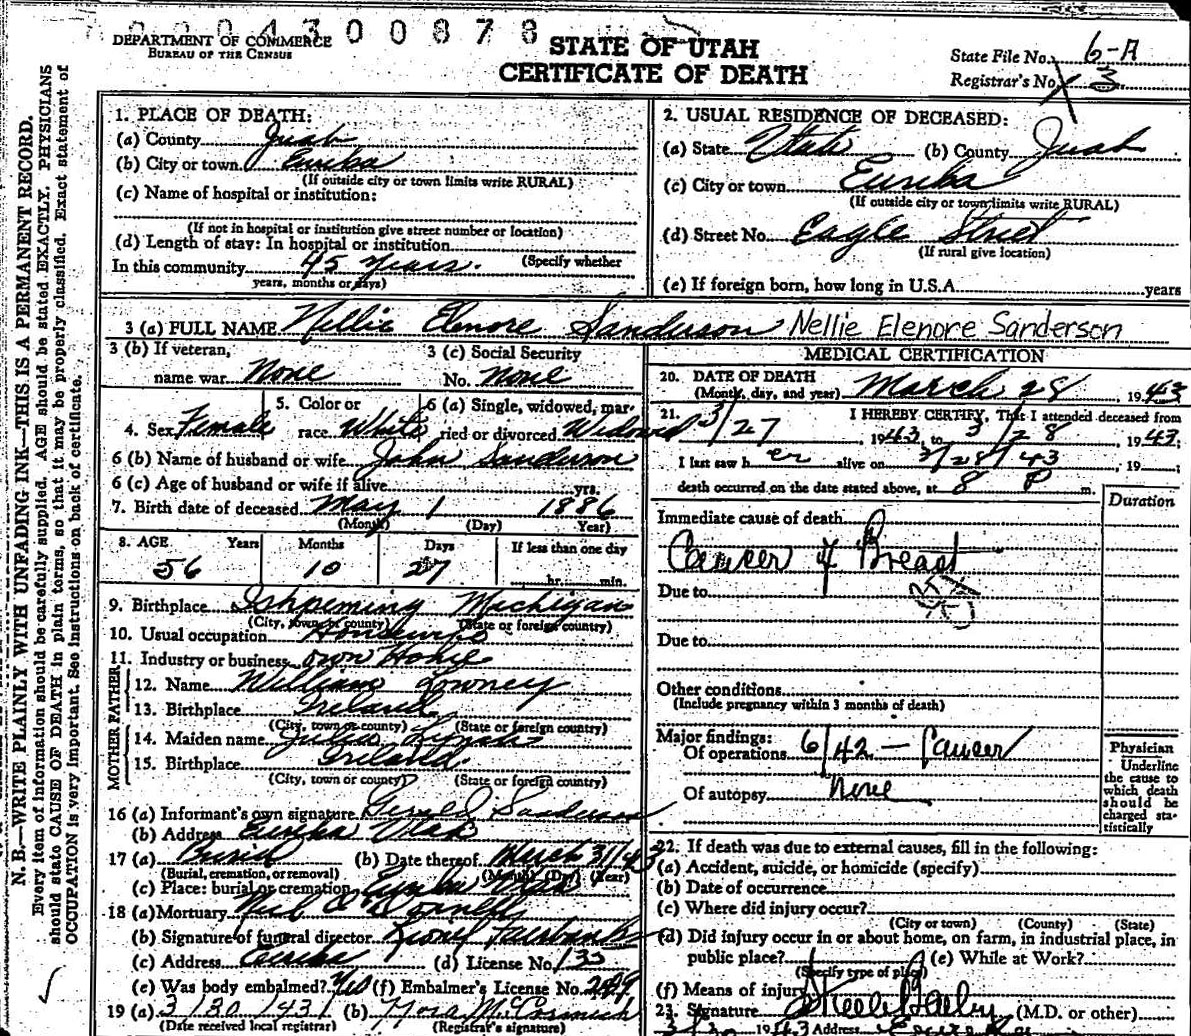 2 0 0 4 3 0 0 8 7 8
DEPARTMENT OF COMMERCE
BUREAU OF THE CENSUS
STATE OF UTAH
CERTIFICATE OF DEATH
State File No. 6-A
Registrar's No. 3
N. B.—WRITE PLAINLY WITH UNFADING INK—THIS IS A PERMANENT RECORD.
Every item of information should be carefully supplied. AGE should be stated EXACTLY. PHYSICIANS
should state CAUSE OF DEATH in plain terms, so that it may be properly classified. Exact statement of
OCCUPATION is very important. See instructions on back of certificate.
1. PLACE OF DEATH:
(a) County Juab
(b) City or town Eureka
(If outside city or town limits write RURAL)
(c) Name of hospital or institution:
(If not in hospital or institution give street number or location)
(d) Length of stay: In hospital or institution
(Specify whether
In this community 45 Years.
years, months or days)
2. USUAL RESIDENCE OF DECEASED:
(a) State Utah (b) County Juab
(c) City or town Eureka
(If outside city or town limits write RURAL)
(d) Street No. Eagle Street
(If rural give location)
(e) If foreign born, how long in U.S.A. years
3 (a) FULL NAME Nellie Elenore Sanderson Nellie Elenore Sanderson
3 (b) If veteran, 3 (c) Social Security
name war None No. None
4. Sex Female 5. Color or race White 6 (a) Single, widowed, married or divorced Widowed
6 (b) Name of husband or wife John Sanderson
6 (c) Age of husband or wife if alive yrs.
7. Birth date of deceased May 1 1886
(Month) (Day) Year)
8. AGE Years Months Days If less than one day
56 10 27 hr. min.
9. Birthplace Ishpeming Michigan
(City, town or county) (State or foreign country)
10. Usual occupation Housewife
11. Industry or business own Home
FATHER
12. Name William Downey
13. Birthplace Ireland
(City, town or county) (State or foreign country)
MOTHER
14. Maiden name Julia Lynch
15. Birthplace Ireland
(City, town or county) (State or foreign country)
16 (a) Informant's own signature Sanderson
(b) Address Eureka Utah
17 (a) Burial (b) Date thereof March 31/43
(Burial, cremation, or removal) (Month) (Day) (Year)
(c) Place: burial or cremation Eureka Utah
18 (a) Mortuary
(b) Signature of funeral director Lionel Fairbanks
(c) Address Eureka (d) License No. 133
(e) Was body embalmed? (f) Embalmer's License No.
19 (a) 3/30/43 (b) Nora McCormick
(Date received local registrar) (Registrar's signature)
MEDICAL CERTIFICATION
20. DATE OF DEATH
(Month, day, and year) March 28, 1943
21. I HEREBY CERTIFY, That I attended deceased from
3/27, 1943, to 3/28, 1943;
I last saw her alive on 3/28/43, 19 ;
death occurred on the date stated above, at 8 P m.
Duration
Immediate cause of death
Cancer of Breast
Due to
Due to
Other conditions
(Include pregnancy within 3 months of death)
Major findings:
Of operations 6/42 — Cancer
Of autopsy None
Physician
Underline
the cause to
which death
should be
charged sta-
tistically
22. If death was due to external causes, fill in the following:
(a) Accident, suicide, or homicide (specify)
(b) Date of occurrence
(c) Where did injury occur?
(City or town) (County) (State)
(d) Did injury occur in or about home, on farm, in industrial place, in
public place? (e) While at Work?
(Specify type of place)
(f) Means of injury
23. Signature Steele Bailey (M.D. or other)
3/30 1943 Address Eureka